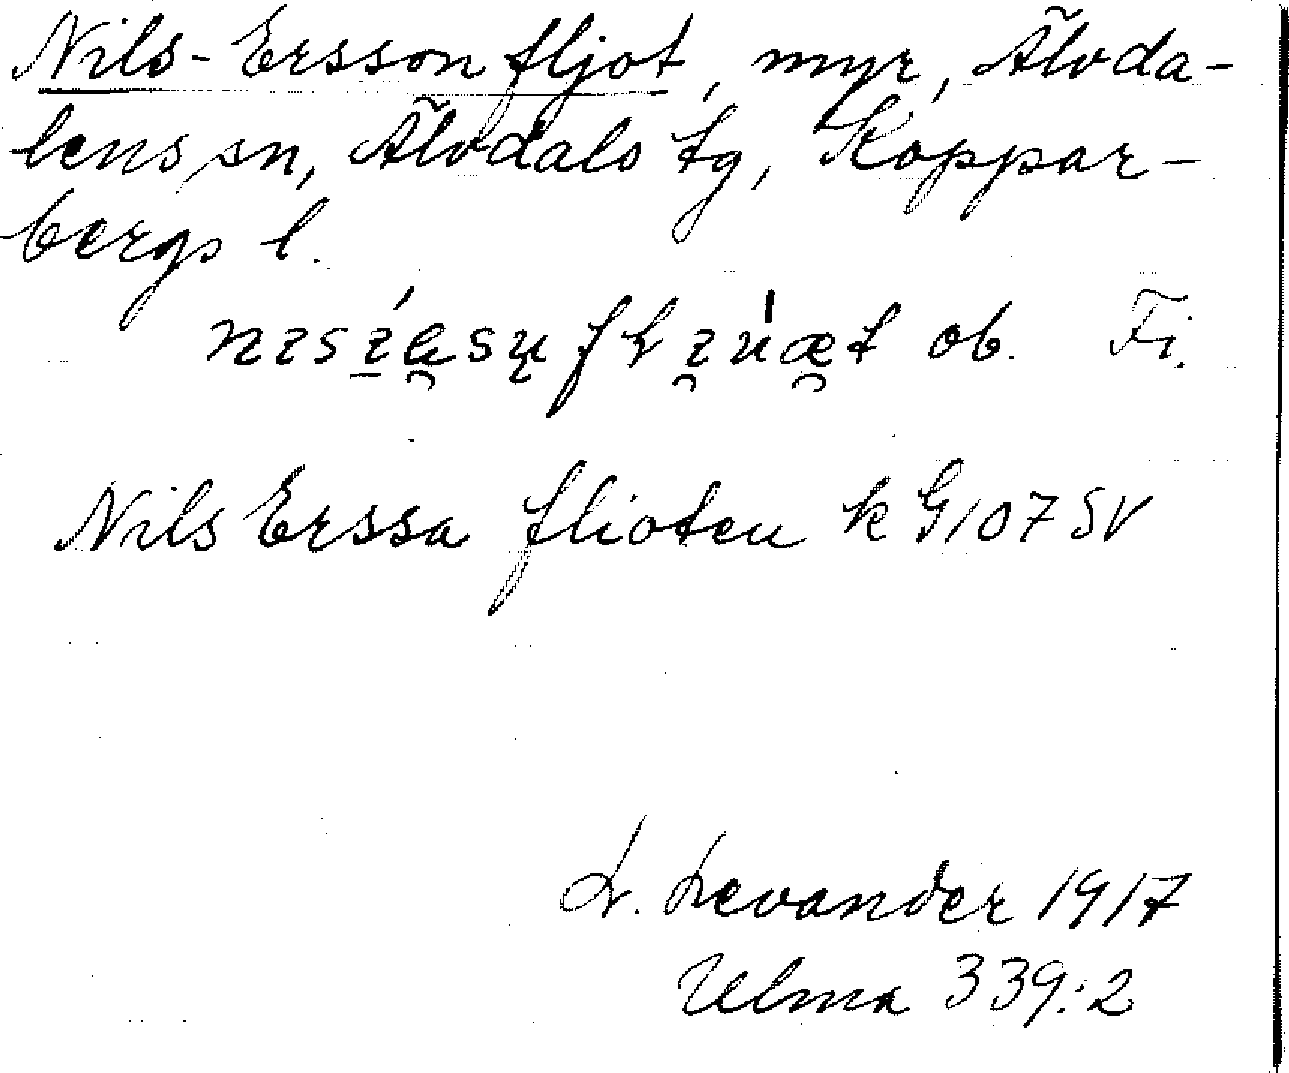 Nils-Ersson fljot, myr, Älvda-
lens sn, Älvdals tg, Koppar-
bergs l.
ob. Fi.
Nils Erssaflioten k G107SV
L. Levander 1917
Ulma 339:2